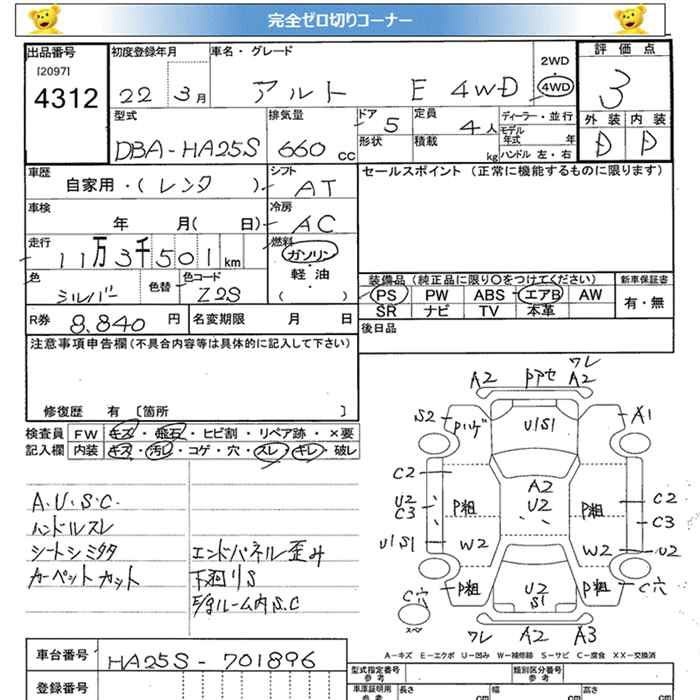 完全ゼロ切りコーナー
出品番号 初度登録年月 車名・グレード 評価点
[2097]
4312
22 3月 アルト E 4WD 2WD 4WD 3
型式 排気量 ドア 定員 ディーラー・並行 外装 内装
DBA-HA25S 660cc 5 4人 モデル年式 年 D D
形状 積載 kg ハンドル 左・右
車歴 シフト セールスポイント (正常に機能するものに限ります)
自家用・(レンタ) AT
車検 冷房
年 月( 日) AC
走行 燃料
11万3千501km ガソリン・軽油 ( )
色 色替 色コード 装備品 (純正品に限り○をつけてください) 新車保証書
シルバー Z2S PS PW ABS エアB AW 有・無
SR ナビ TV 本革
R券 8.840円 名変期限 月 日 後日品
注意事項申告欄(不具合内容等は具体的に記入して下さい)
修復歴 有 [箇所 ]
検査員 FW キズ・飛石・ヒビ割・リペア跡・×要
記入欄 内装 キズ・汚レ・コゲ・穴・スレ・キレ・破レ
A.U.S.C.
ハンドルスレ
シートシミタタ エンドパネル歪み
カーペットカット 下廻りS
E/gルーム内S.C
ワレ
A2 Pアセ A2
S2 Pハゲ U1S1 A1
C2 A2 C2
U2 C3 P粗 U2 P粗 C3
U1S1 W2 W2 U2
P粗 U2 S1 P粗 C穴
C穴
スペア
ワレ A2 A3
A-キズ E-エクボ U-凹み W-補修跡 S-サビ C-腐食 XX-交換済
車台番号 HA25S-701896 型式指定番号 参考 類別区分番号 参考
登録番号 車庫証明用 参考 長さ cm 幅 cm 高さ cm